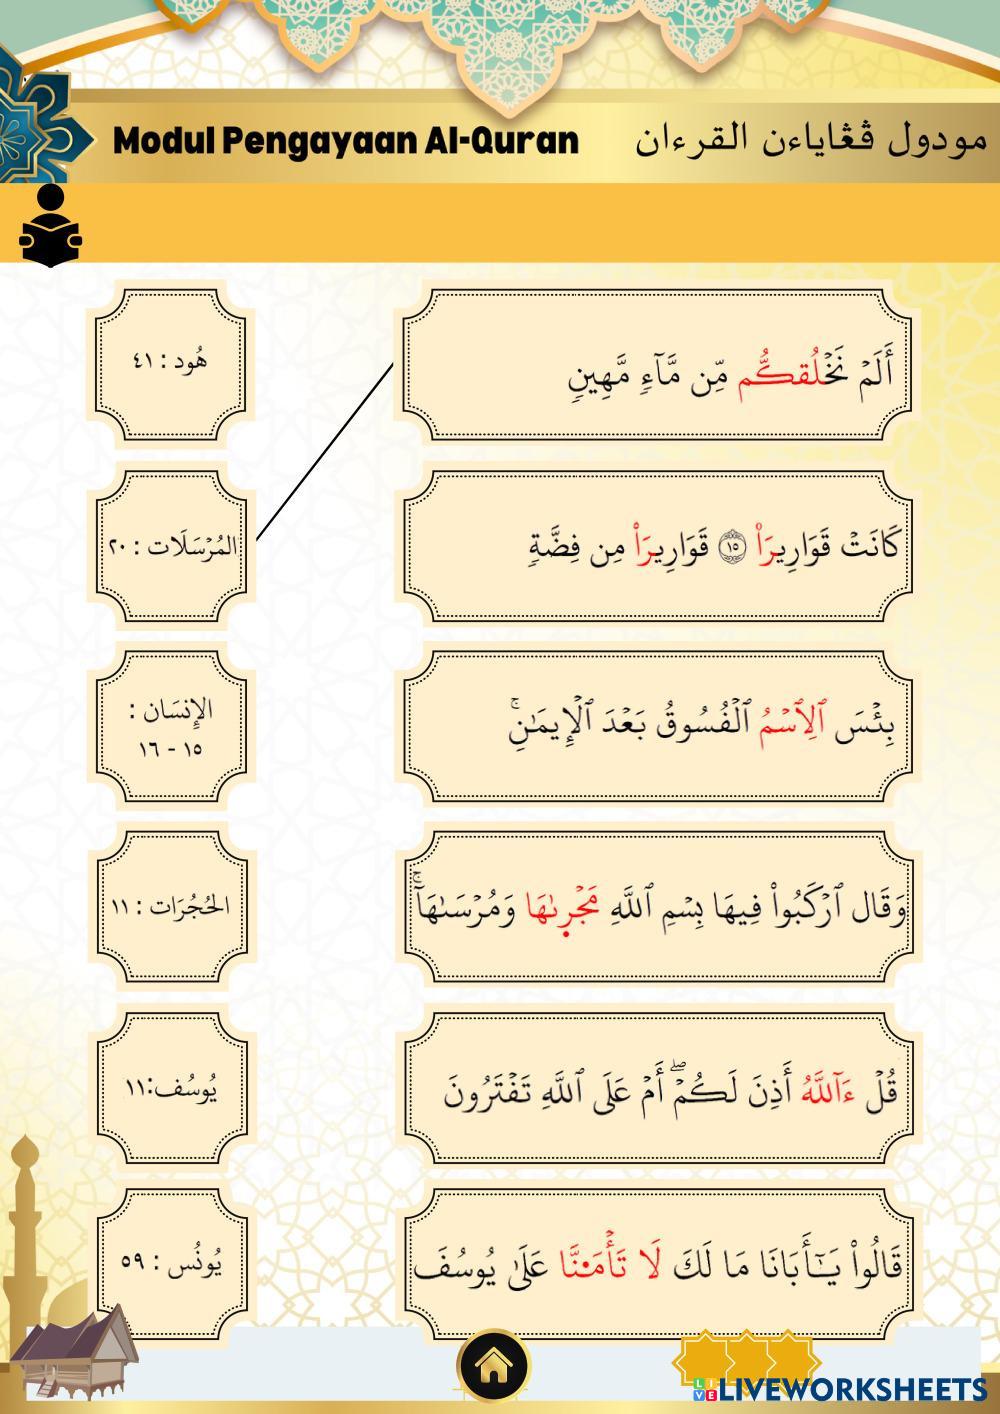 Modul Pengayaan Al-Quran
مودول ڤڠاياءن القرءان
هُود : ٤١
أَلَمْ نَخْلُقكُّم مِّن مَّآءٍ مَّهِينٍ
المُرْسَلَات : ٢٠
كَانَتْ قَوَارِيرَا۠ ١٥ قَوَارِيرَا۟ مِن فِضَّةٍ
الإِنسَان :
١٥ - ١٦
بِئْسَ ٱلِٱسْمُ ٱلْفُسُوقُ بَعْدَ ٱلْإِيمَـٰنِ ۚ
الحُجُرَات : ١١
وَقَال ٱرْكَبُوا۟ فِيهَا بِسْمِ ٱللَّهِ مَجْر۪ىٰهَا وَمُرْسَىٰهَآ ۚ
يُوسُف:١١
قُلْ ءَآللَّهُ أَذِنَ لَكُمْ ۖ أَمْ عَلَى ٱللَّهِ تَفْتَرُونَ
يُونُس : ٥٩
قَالُوا۟ يَـٰٓأَبَانَا مَا لَكَ لَا تَأْمَ۫نَّا عَلَىٰ يُوسُفَ
LIVEWORKSHEETS